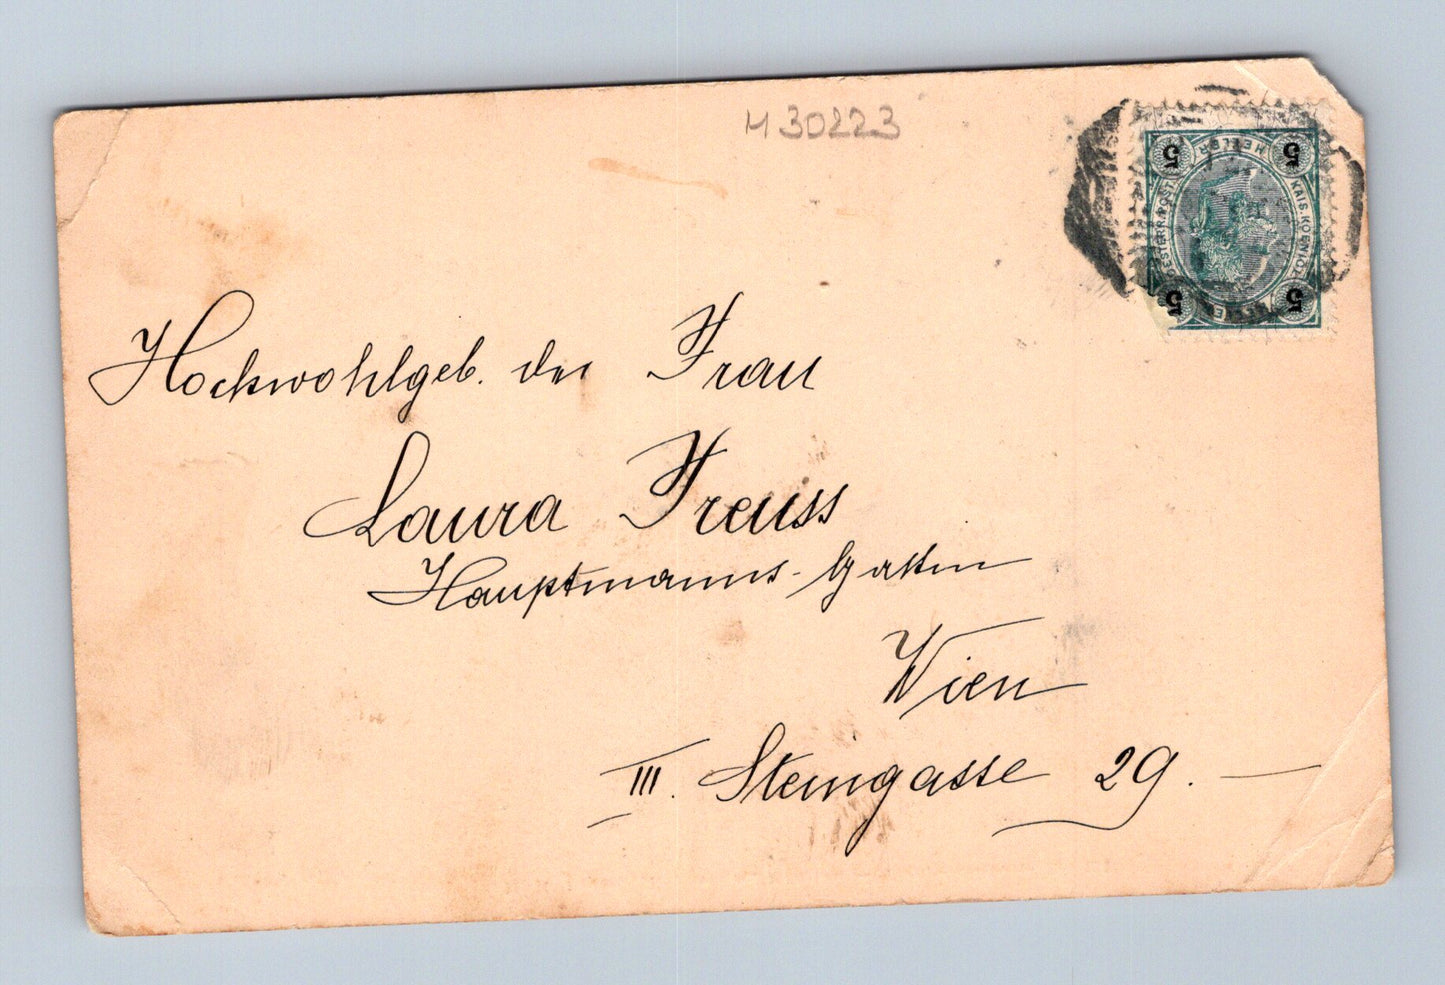 H30223
5 HELLER 5
KAIS. KOENIGL.
OESTERR. POST.
5 HELLER 5
Hochwohlgeb. der Frau
Laura Freuss
Hauptmanns-Gattin
Wien
III. Steingasse 29.